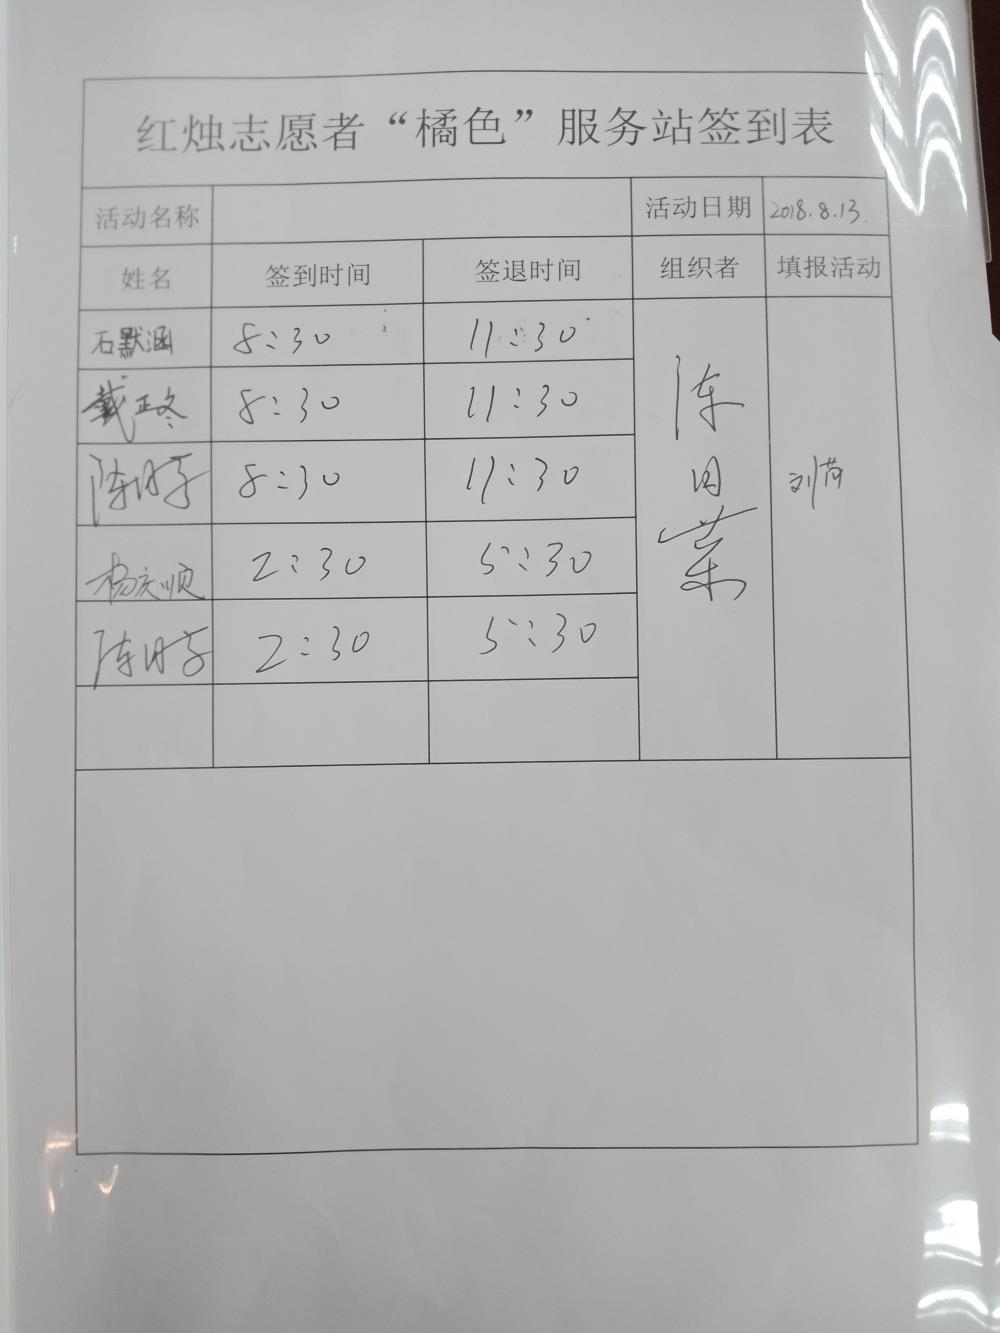 红烛志愿者“橘色”服务站签到表
活动名称 活动日期 2018.8.13.
姓名 签到时间 签退时间 组织者 填报活动
石默涵 8:30 11:30
戴正冬 8:30 11:30
陈 8:30 11:30
杨庆顺 2:30 5:30
陈 2:30 5:30
陈
刘荷